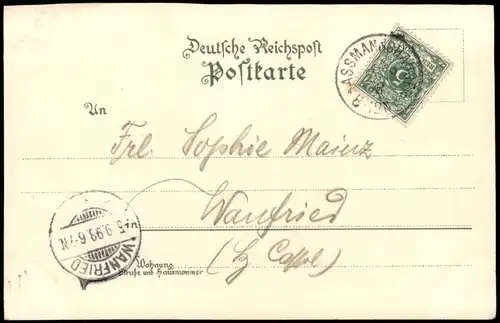 Deutsche Reichspost
Postkarte
ASSMANNSH
8
An
Frl. Sophie Mainz
in
Wanfried
(Bz Cassel)
WANFRIED
5.9.99.6-7N.
Wohnung
Straße und Hausnummer